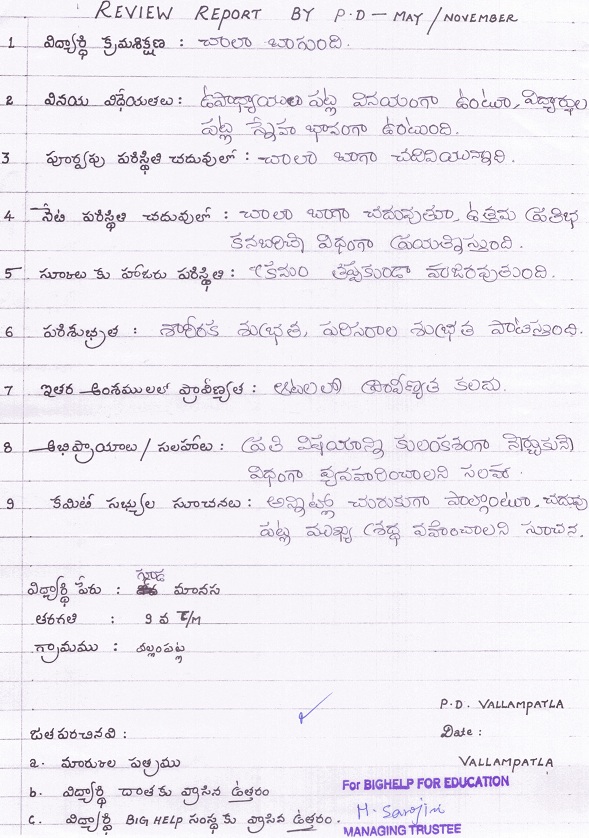 REVIEW REPORT BY P.D - MAY / NOVEMBER
1 విద్యార్థి క్రమశిక్షణ : చాలా బాగుంది.
2 వినయ విధేయతలు : ఉపాధ్యాయులు పట్ల వినయంగా ఉంటూ, విద్యార్థుల
పట్ల స్నేహ భావంగా ఉంటుంది.
3 పూర్వపు పరిస్థితి చదువులో : చాలా బాగా చదివియున్నాది.
4 నేటి పరిస్థితి చదువులో : చాలా బాగా చదువుతూ, ఉత్తమ ప్రతిభ
కనబరిచే విధంగా ప్రయత్నిస్తుంది.
5 స్కూలు కు హాజరు పరిస్థితి : క్రమం తప్పకుండా హాజరవుతుంది.
6 పరిశుభ్రత : శారీరక శుభ్రత, పరిసరాల శుభ్రత పాటిస్తుంది.
7 ఇతర అంశములలో ప్రావీణ్యత : ఆటలలో ప్రావీణ్యత కలదు.
8 అభిప్రాయాలు / సలహాలు : ప్రతి విషయాన్ని కులంకశంగా నేర్చుకునే
విధంగా వ్యవహరించాలని సలహా.
9 కమిటీ సభ్యుల సూచనలు : అన్నిట్లో చురుకుగా పాల్గొంటూ, చదువు
పట్ల ముఖ్య శ్రద్ధ వహించాలని సూచన.
విద్యార్థి పేరు : గూడ మానస
తరగతి : 9 వ T/M
గ్రామము : వల్లంపట్ల
P.D. VALLAMPATLA
జతపరచినవి :
Date :
a. మార్కుల పత్రము
VALLAMPATLA
b. విద్యార్థి దాతకు వ్రాసిన ఉత్తరం
For BIGHELP FOR EDUCATION
c. విద్యార్థి BIG HELP సంస్థ కు వ్రాసిన ఉత్తరం.
H. Sarojini
MANAGING TRUSTEE